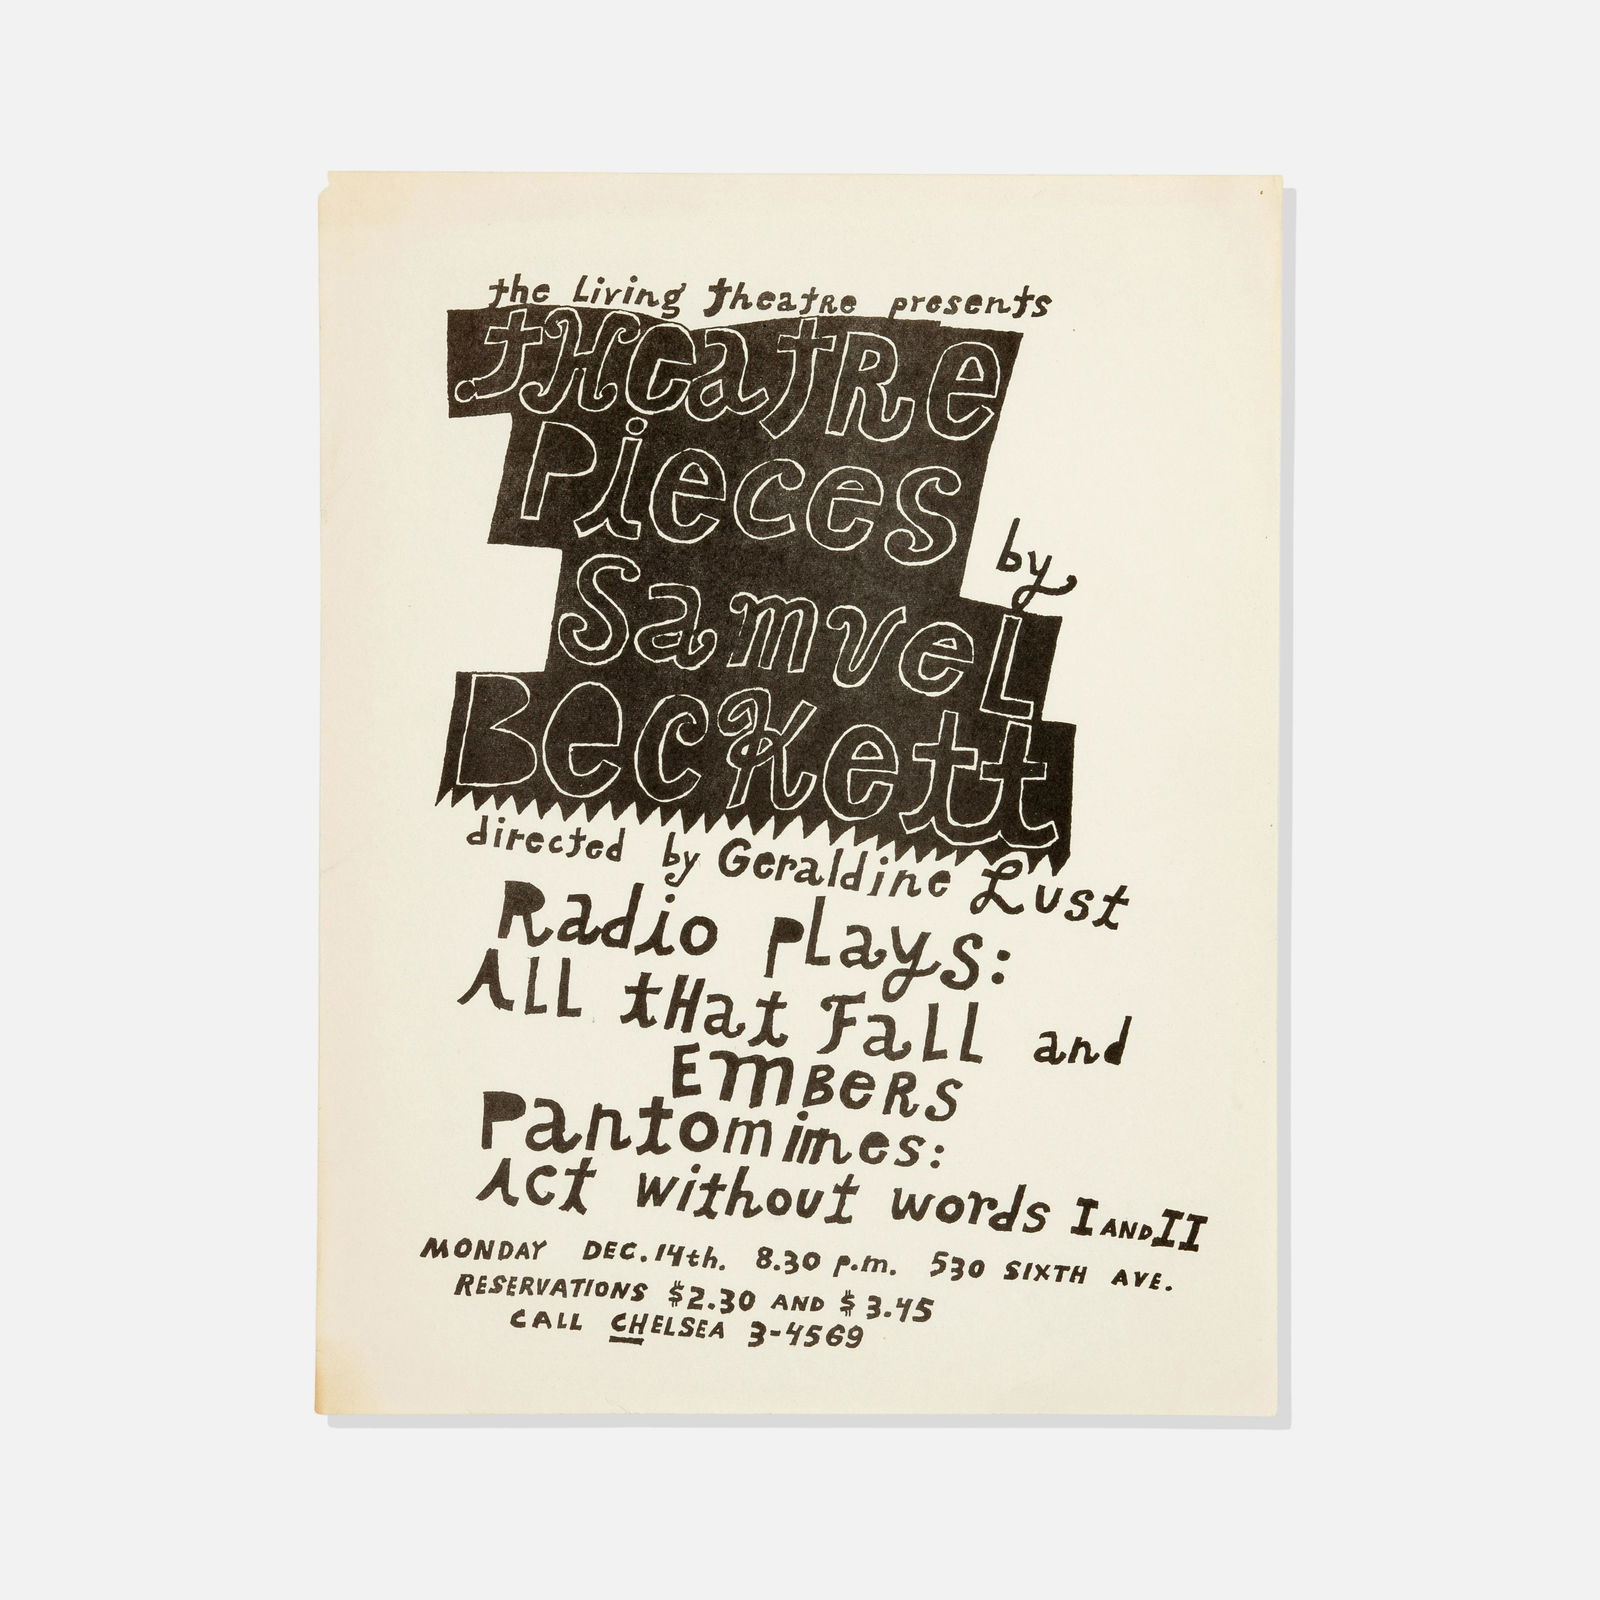 the Living theatre presents
tHeatRe
Pieces
by
SamueL
BecKett
directed by Geraldine Lust
Radio plays:
ALL tHat FaLL and
EmBeRS
Pantomimes:
Act without words I AND II
MONDAY DEC. 14th. 8.30 p.m. 530 SIXTH AVE.
RESERVATIONS $2.30 AND $3.45
CALL CHELSEA 3-4569